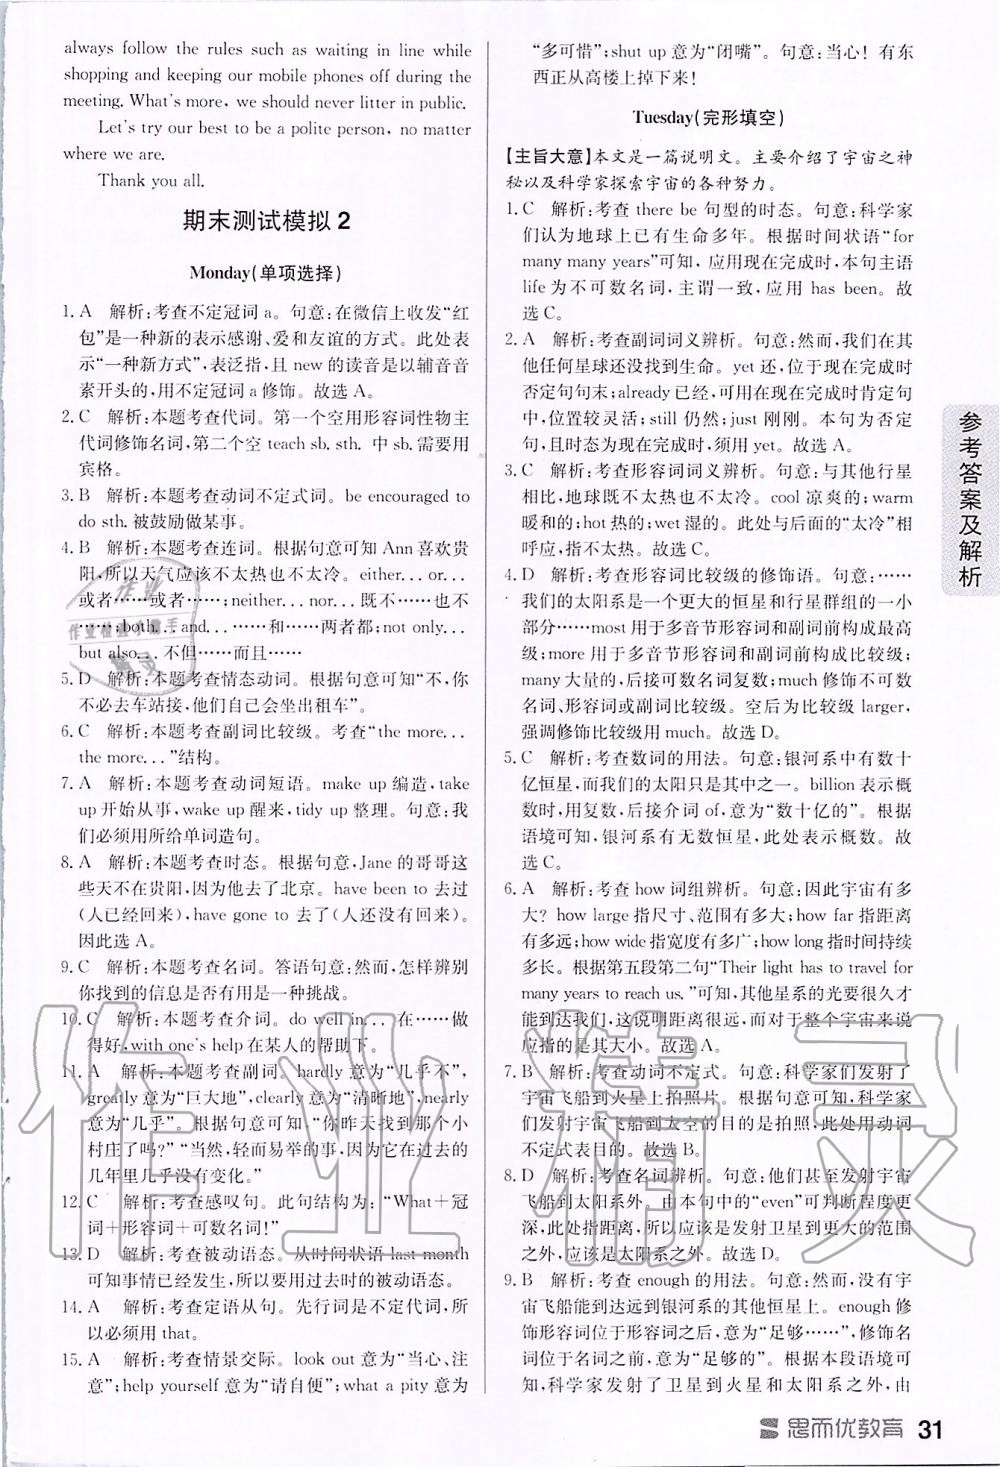 always follow the rules such as waiting in line while
shopping and keeping our mobile phones off during the
meeting. What's more, we should never litter in public.
Let's try our best to be a polite person, no matter
where we are.
Thank you all.
期末测试模拟 2
Monday(单项选择)
1. A 解析:考查不定冠词 a。句意:在微信上收发“红
包”是一种新的表示感谢、爱和友谊的方式。此处表
示“一种新方式”,表泛指,且 new 的读音是以辅音音
素开头的,用不定冠词 a 修饰。故选 A。
2. C 解析:本题考查代词。第一个空用形容词性物主
代词修饰名词,第二个空 teach sb. sth. 中 sb. 需要用
宾格。
3. B 解析:本题考查动词不定式词。be encouraged to
do sth. 被鼓励做某事。
4. B 解析:本题考查连词。根据句意可知 Ann 喜欢贵
阳,所以天气应该不太热也不太冷。either... or...
或者……或者……;neither... nor... 既不……也不
……;both... and... ……和……两者都;not only...
but also... 不但……而且……
5. D 解析:本题考查情态动词。根据句意可知“不,你
不必去车站接,他们自己会坐出租车”。
6. C 解析:本题考查副词比较级。考查“the more...
the more...”结构。
7. A 解析:本题考查动词短语。make up 编造,take
up 开始从事,wake up 醒来,tidy up 整理。句意:我
们必须用所给单词造句。
8. A 解析:本题考查时态。根据句意,Jane 的哥哥这
些天不在贵阳,因为他去了北京。have been to 去过
(人已经回来),have gone to 去了(人还没有回来)。
因此选 A。
9. C 解析:本题考查名词。答语句意:然而,怎样辨别
你找到的信息是否有用是一种挑战。
10. C 解析:本题考查介词。do well in... 在……做
得好,with one's help 在某人的帮助下。
11. A 解析:本题考查副词。hardly 意为“几乎不”,
greatly 意为“巨大地”,clearly 意为“清晰地”,nearly
意为“几乎”。根据句意可知“你昨天找到那个小
村庄了吗?”“当然,轻而易举的事,因为它在过去的
几年里几乎没有变化。”
12. C 解析:考查感叹句。此句结构为:“What+冠
词+形容词+可数名词!”
13. D 解析:考查被动语态。从时间状语 last month
可知事情已经发生,所以要用过去时的被动语态。
14. A 解析:考查定语从句。先行词是不定代词,所
以必须用 that。
15. A 解析:考查情景交际。look out 意为“当心、注
意”;help yourself 意为“请自便”;what a pity 意为
“多可惜”;shut up 意为“闭嘴”。句意:当心!有东
西正从高楼上掉下来!
Tuesday(完形填空)
【主旨大意】本文是一篇说明文。主要介绍了宇宙之神
秘以及科学家探索宇宙的各种努力。
1. C 解析:考查 there be 句型的时态。句意:科学家
们认为地球上已有生命多年。根据时间状语“for
many many years”可知,应用现在完成时,本句主语
life 为不可数名词,主谓一致,应用 has been。故
选 C。
2. A 解析:考查副词词义辨析。句意:然而,我们在其
他任何星球还没找到生命。yet 还,位于现在完成时
否定句句末;already 已经,可用于现在完成时肯定句
中,位置较灵活;still 仍然;just 刚刚。本句为否定
句,且时态为现在完成时,须用 yet。故选 A。
3. C 解析:考查形容词词义辨析。句意:与其他行星
相比,地球既不太热也不太冷。cool 凉爽的;warm
暖和的;hot 热的;wet 湿的。此处与后面的“太冷”相
呼应,指不太热。故选 C。
4. D 解析:考查形容词比较级的修饰语。句意:……
我们的太阳系是一个更大的恒星和行星群组的一小
部分……most 用于多音节形容词和副词前构成最高
级;more 用于多音节形容词和副词前构成比较级;
many 大量的,后接可数名词复数;much 修饰不可数
名词、形容词或副词比较级。空后为比较级 larger,
强调修饰比较级用 much。故选 D。
5. C 解析:考查数词的用法。句意:银河系中有数十
亿恒星,而我们的太阳只是其中之一。billion 表示概
数时,用复数,后接介词 of,意为“数十亿的”。根据
语境可知,银河系有无数恒星,此处表示概数。故
选 C。
6. A 解析:考查 how 词组辨析。句意:因此宇宙有多
大? how large 指尺寸、范围有多大;how far 指距离
有多远;how wide 指宽度有多广;how long 指时间持续
多长。根据第五段第二句“Their light has to travel for
many years to reach us.”可知,其他星系的光要很久才
能到达我们,这说明距离很远,而对于整个宇宙来说
应指的是其大小。故选 A。
7. B 解析:考查动词不定式。句意:科学家们发射了
宇宙飞船到火星上拍照片。根据句意可知,科学家
们发射宇宙飞船到太空的目的是拍照,此处用动词
不定式表目的。故选 B。
8. D 解析:考查名词辨析。句意:他们甚至发射宇宙
飞船到太阳系外。由本句中的“even”可判断程度更
深,此处指距离,所以应该是发射卫星到更大的范围
之外,应该是太阳系之外。故选 D。
9. B 解析:考查 enough 的用法。句意:然而,没有宇
宙飞船能到达远到银河系的其他恒星上。enough 修
饰形容词位于形容词之后,意为“足够……”,修饰名
词位于名词之前,意为“足够的”。根据本段语境可
知,科学家发射了卫星到火星和太阳系之外,由
参考答案及解析
思而优教育 31
作业精灵